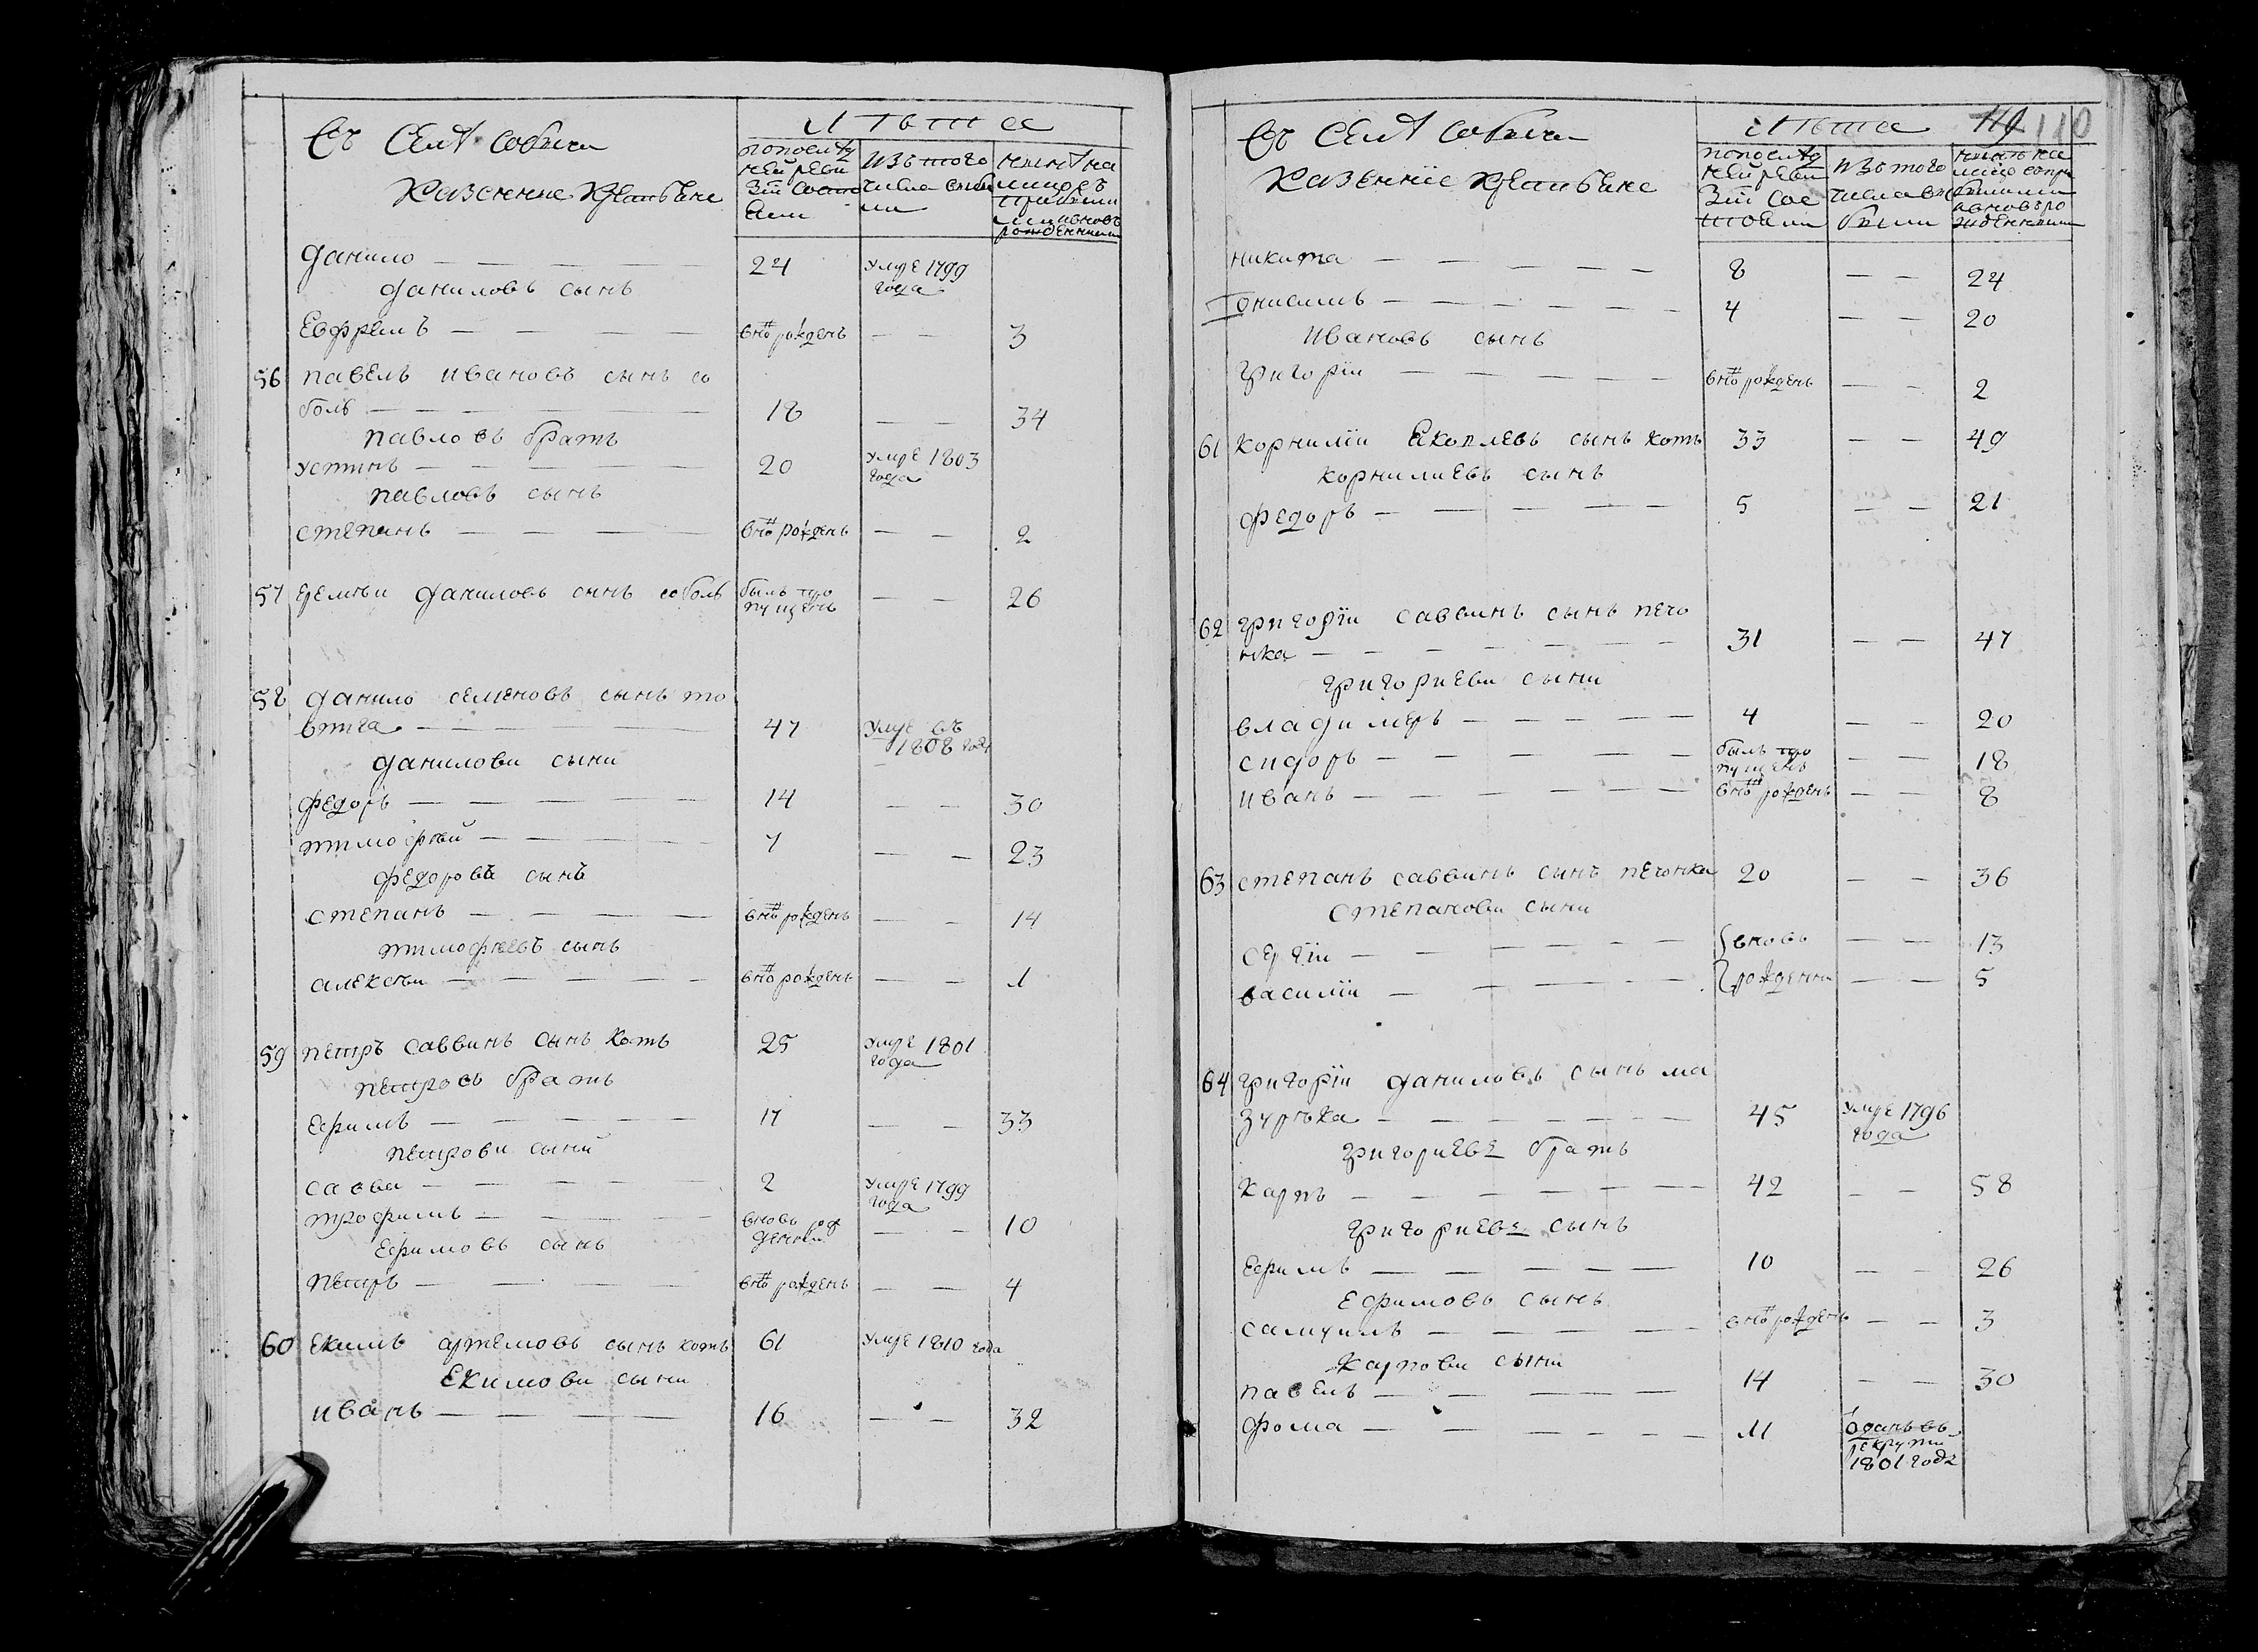 Въ Селѣ Собичи
Казенние Крестьяне
Лѣта
попослѣд
ней реви
зіи состо
яли
Изъ того
числа выбы
ли
нынѣ на
лицо съ
прибыли
ми и вновь
рожденными
данило — — — — — 24 умре 1799
года
даниловъ сынъ
Евфремъ — — — — вновь рожденъ — — 3
56 павелъ ивановъ сынъ со
боль — — — — — 18 — — 34
павловъ братъ
устинъ — — — — — 20 умре 1803
года
павловъ сынъ
степанъ — — — — вновь рожденъ — — 2
57 демѣи даниловъ сынъ соболь былъ про
пущенъ — — 26
58 данило семеновъ сынъ то
втига — — — — 47 умре въ
1808 году
данилови сыни
федоръ — — — — — 14 — — 30
тимофѣй — — — — 7 — — 23
федоровъ сынъ
степанъ — — — — вновь рожденъ — — 14
тимофѣевъ сынъ
алексѣи — — — — вновь рожденъ — — 1
59 петръ саввинъ сынъ котъ 25 умре 1801
года
петровъ братъ
Ефимъ — — — — — 17 — — 33
петрови сыни
савва — — — — — 2 умре 1799
года
трофимъ — — — — вновь рож
денъ — — 10
Ефимовъ сынъ
петръ — — — — вновь рожденъ — — 4
60 Екимъ артемовъ сынъ котъ 61 умре 1810 года
Екимови сыни
иванъ — — — — 16 — — 32
110
Въ Селѣ Собичи
Казенніе Крестьяне
Лѣта
попослѣд
ней реви
зіи сос
тояли
Изъ того
числа вы
были
нынѣ на
лицо сопри
былими
авновъ ро
жденными
никита — — — — — 8 — — 24
онисимъ — — — — — 4 — — 20
Ивановъ сынъ
григоріи — — — — вновь рожденъ — — 2
61 корниліи Яковлевъ сынъ котъ 33 — — 49
корнилиевъ сынъ
федоръ — — — — — 5 — — 21
62 григоріи саввинъ сынъ печо
нка — — — — — — 31 — — 47
григориеви сыни
владимеръ — — — — — 4 — — 20
сидоръ — — — — — былъ про
пущенъ — — 18
иванъ — — — — — вновь рожденъ — — 8
63 степанъ саввинъ сынъ печонка 20 — — 36
степанови сыни
сергіи — — — — — вновь — — 13
василіи — — — — — рожденни — — 5
64 григоріи даниловъ сынъ ма
зурѣка — — — — — 45 умре 1796
года
григориевъ братъ
карпъ — — — — — 42 — — 58
григориевъ сынъ
Ефимъ — — — — — 10 — — 26
Ефимовъ сынъ
самуилъ — — — — вновь рожденъ — — 3
Карпови сыни
павелъ — — — — — 14 — — 30
фома — — — — — — 11 Оданъ въ
рекруты
1801 года